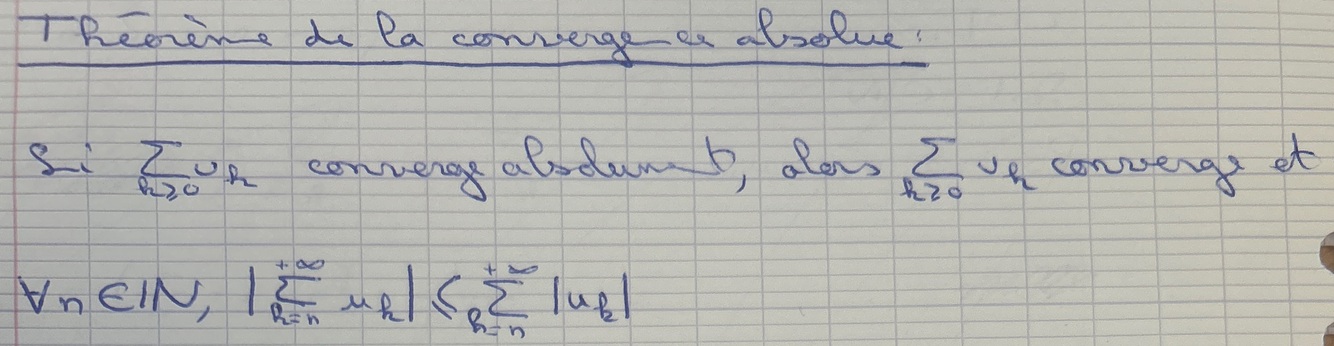 Théorème de la convergence absolue :
Si ∑_{k≥0} u_k converge absolument, alors ∑_{k≥0} u_k converge et
∀n ∈ ℕ, |∑_{k=n}^{+∞} u_k| ≤ ∑_{k=n}^{+∞} |u_k|